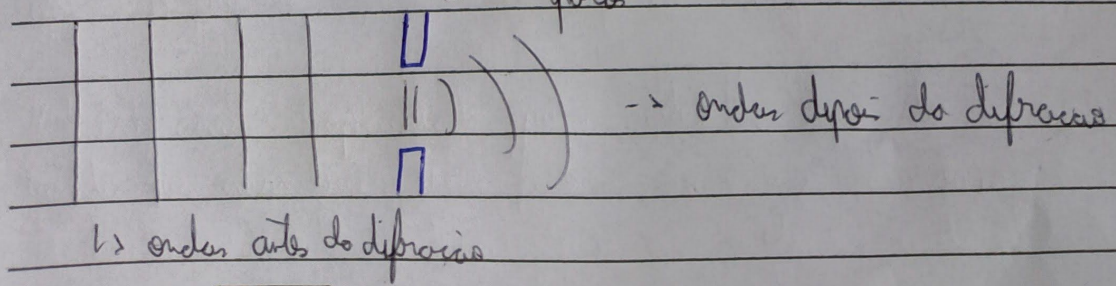 -> ondas depois da difracao
↳ ondas antes da difracao